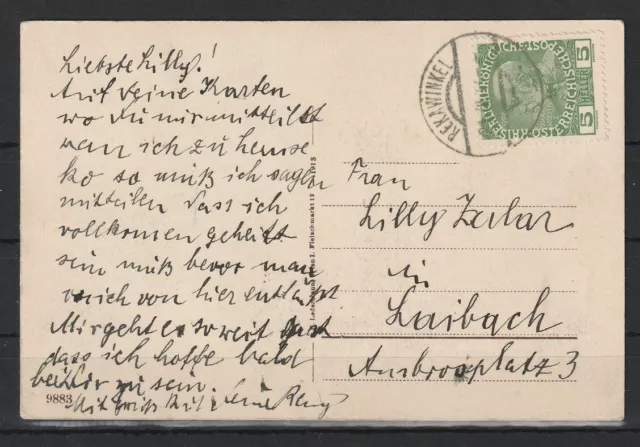 Liebste Lilly!
Auf deine Karten
wo Du mir mitteilst
wan ich zu hause
ko so muß ich sagen
mitteilen dass ich
vollkomen geheilt
sein muß bevor man
mich von hier entläßt
Mir geht es so weit
dass ich hoffe bald
bei Dir zu sein.
Mit Gruß Kuß
9883
Fleischmarkt 1913
REKAWINKEL
KAISERLICHE KÖNIGLICHE ÖSTERREICHISCHE POST
5 HELLER 5
Frau
Lilly Zeilar
in
Laibach
Ambrosplatz 3